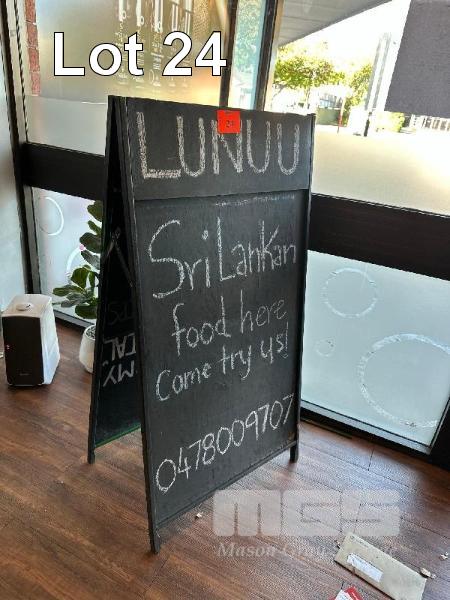 Lot 24
24
LUNUU
Sri Lankan
food here
Come try us!
0478009707
MY
MGS
Mason Gray